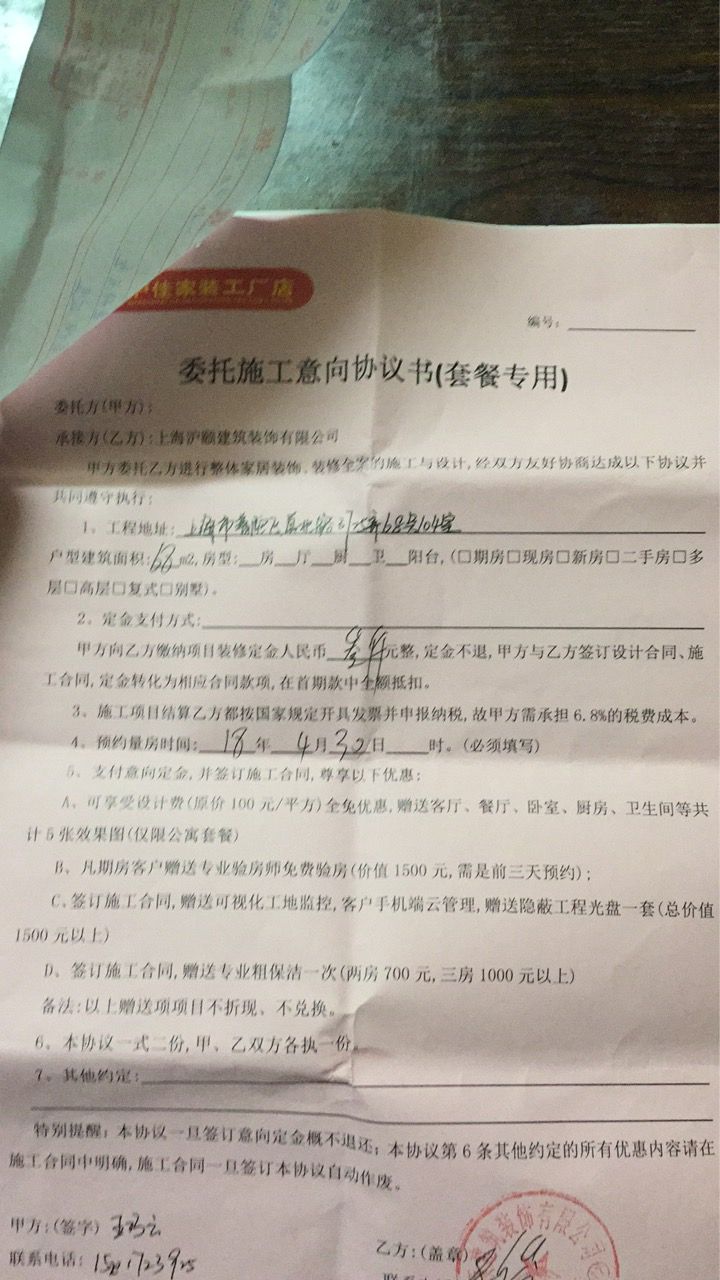 佳家装工厂店
编号:
委托施工意向协议书(套餐专用)
委托方(甲方):
承接方(乙方):上海沪颐建筑装饰有限公司
甲方委托乙方进行整体家居装饰、装修全案的施工与设计,经双方友好协商达成以下协议并
共同遵守执行:
1、工程地址: 上海市普陀区真北路 68号104室
户型建筑面积:68m2,房型:__房__厅__厨__卫__阳台,(□期房□现房□新房□二手房□多
层□高层□复式□别墅)。
2、定金支付方式:
甲方向乙方缴纳项目装修定金人民币 叁仟元整,定金不退,甲方与乙方签订设计合同、施
工合同,定金转化为相应合同款项,在首期款中全额抵扣。
3、施工项目结算乙方都按国家规定开具发票并申报纳税,故甲方需承担6.8%的税费成本。
4、预约量房时间: 18 年 4月30日____时。(必须填写)
5、支付意向定金,并签订施工合同,尊享以下优惠:
A、可享受设计费(原价100元/平方)全免优惠,赠送客厅、餐厅、卧室、厨房、卫生间等共
计5张效果图(仅限公寓套餐)
B、凡期房客户赠送专业验房师免费验房(价值1500元,需是前三天预约);
C、签订施工合同,赠送可视化工地监控,客户手机端云管理,赠送隐蔽工程光盘一套(总价值
1500元以上)
D、签订施工合同,赠送专业粗保洁一次(两房700元,三房1000元以上)
备法:以上赠送项项目不折现、不兑换。
6、本协议一式二份,甲、乙双方各执一份。
7、其他约定:
特别提醒:本协议一旦签订意向定金概不退还;本协议第6条其他约定的所有优惠内容请在
施工合同中明确,施工合同一旦签订本协议自动作废。
甲方:(签字)
联系电话:
乙方:(盖章)
筑装饰有限公司